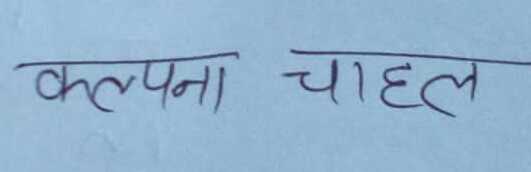 कल्पना चाहल